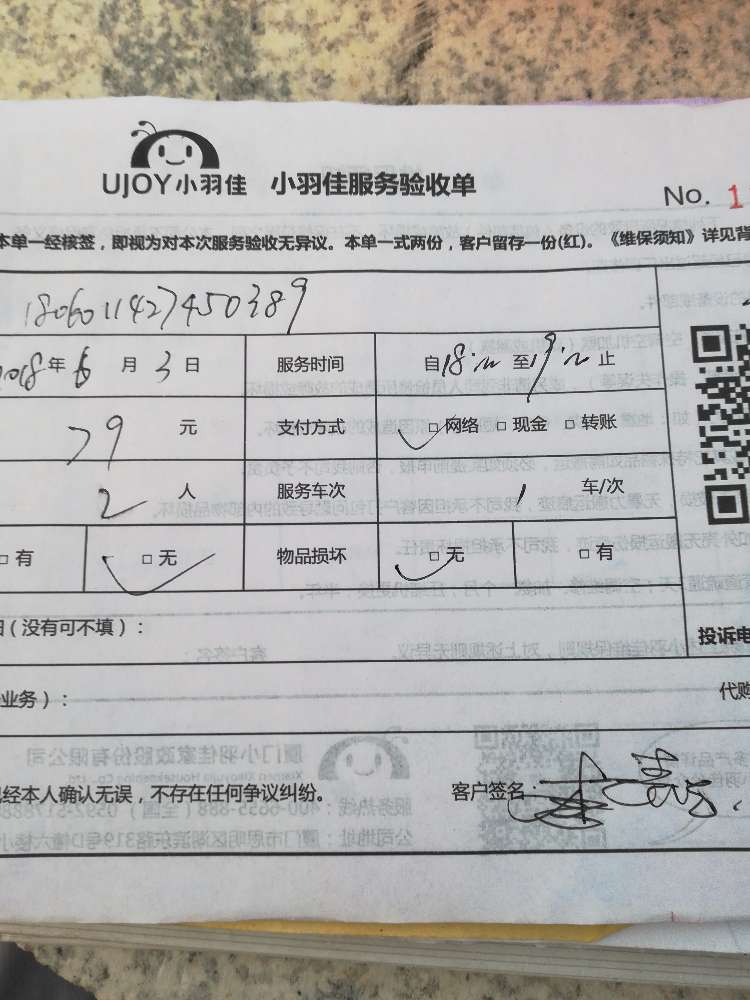 UJOY小羽佳 小羽佳服务验收单
No. 1
本单一经核签，即视为对本次服务验收无异议。本单一式两份，客户留存一份(红)。《维保须知》详见背
1806011427450389
2018年6月3日 服务时间 自18:00至19:00止
79元 支付方式 □网络 □现金 □转账
2人 服务车次 1车/次
□有 □无 物品损坏 □无 □有
(没有可不填)：
投诉电
业务)：
代购
经本人确认无误，不存在任何争议纠纷。 客户签名：